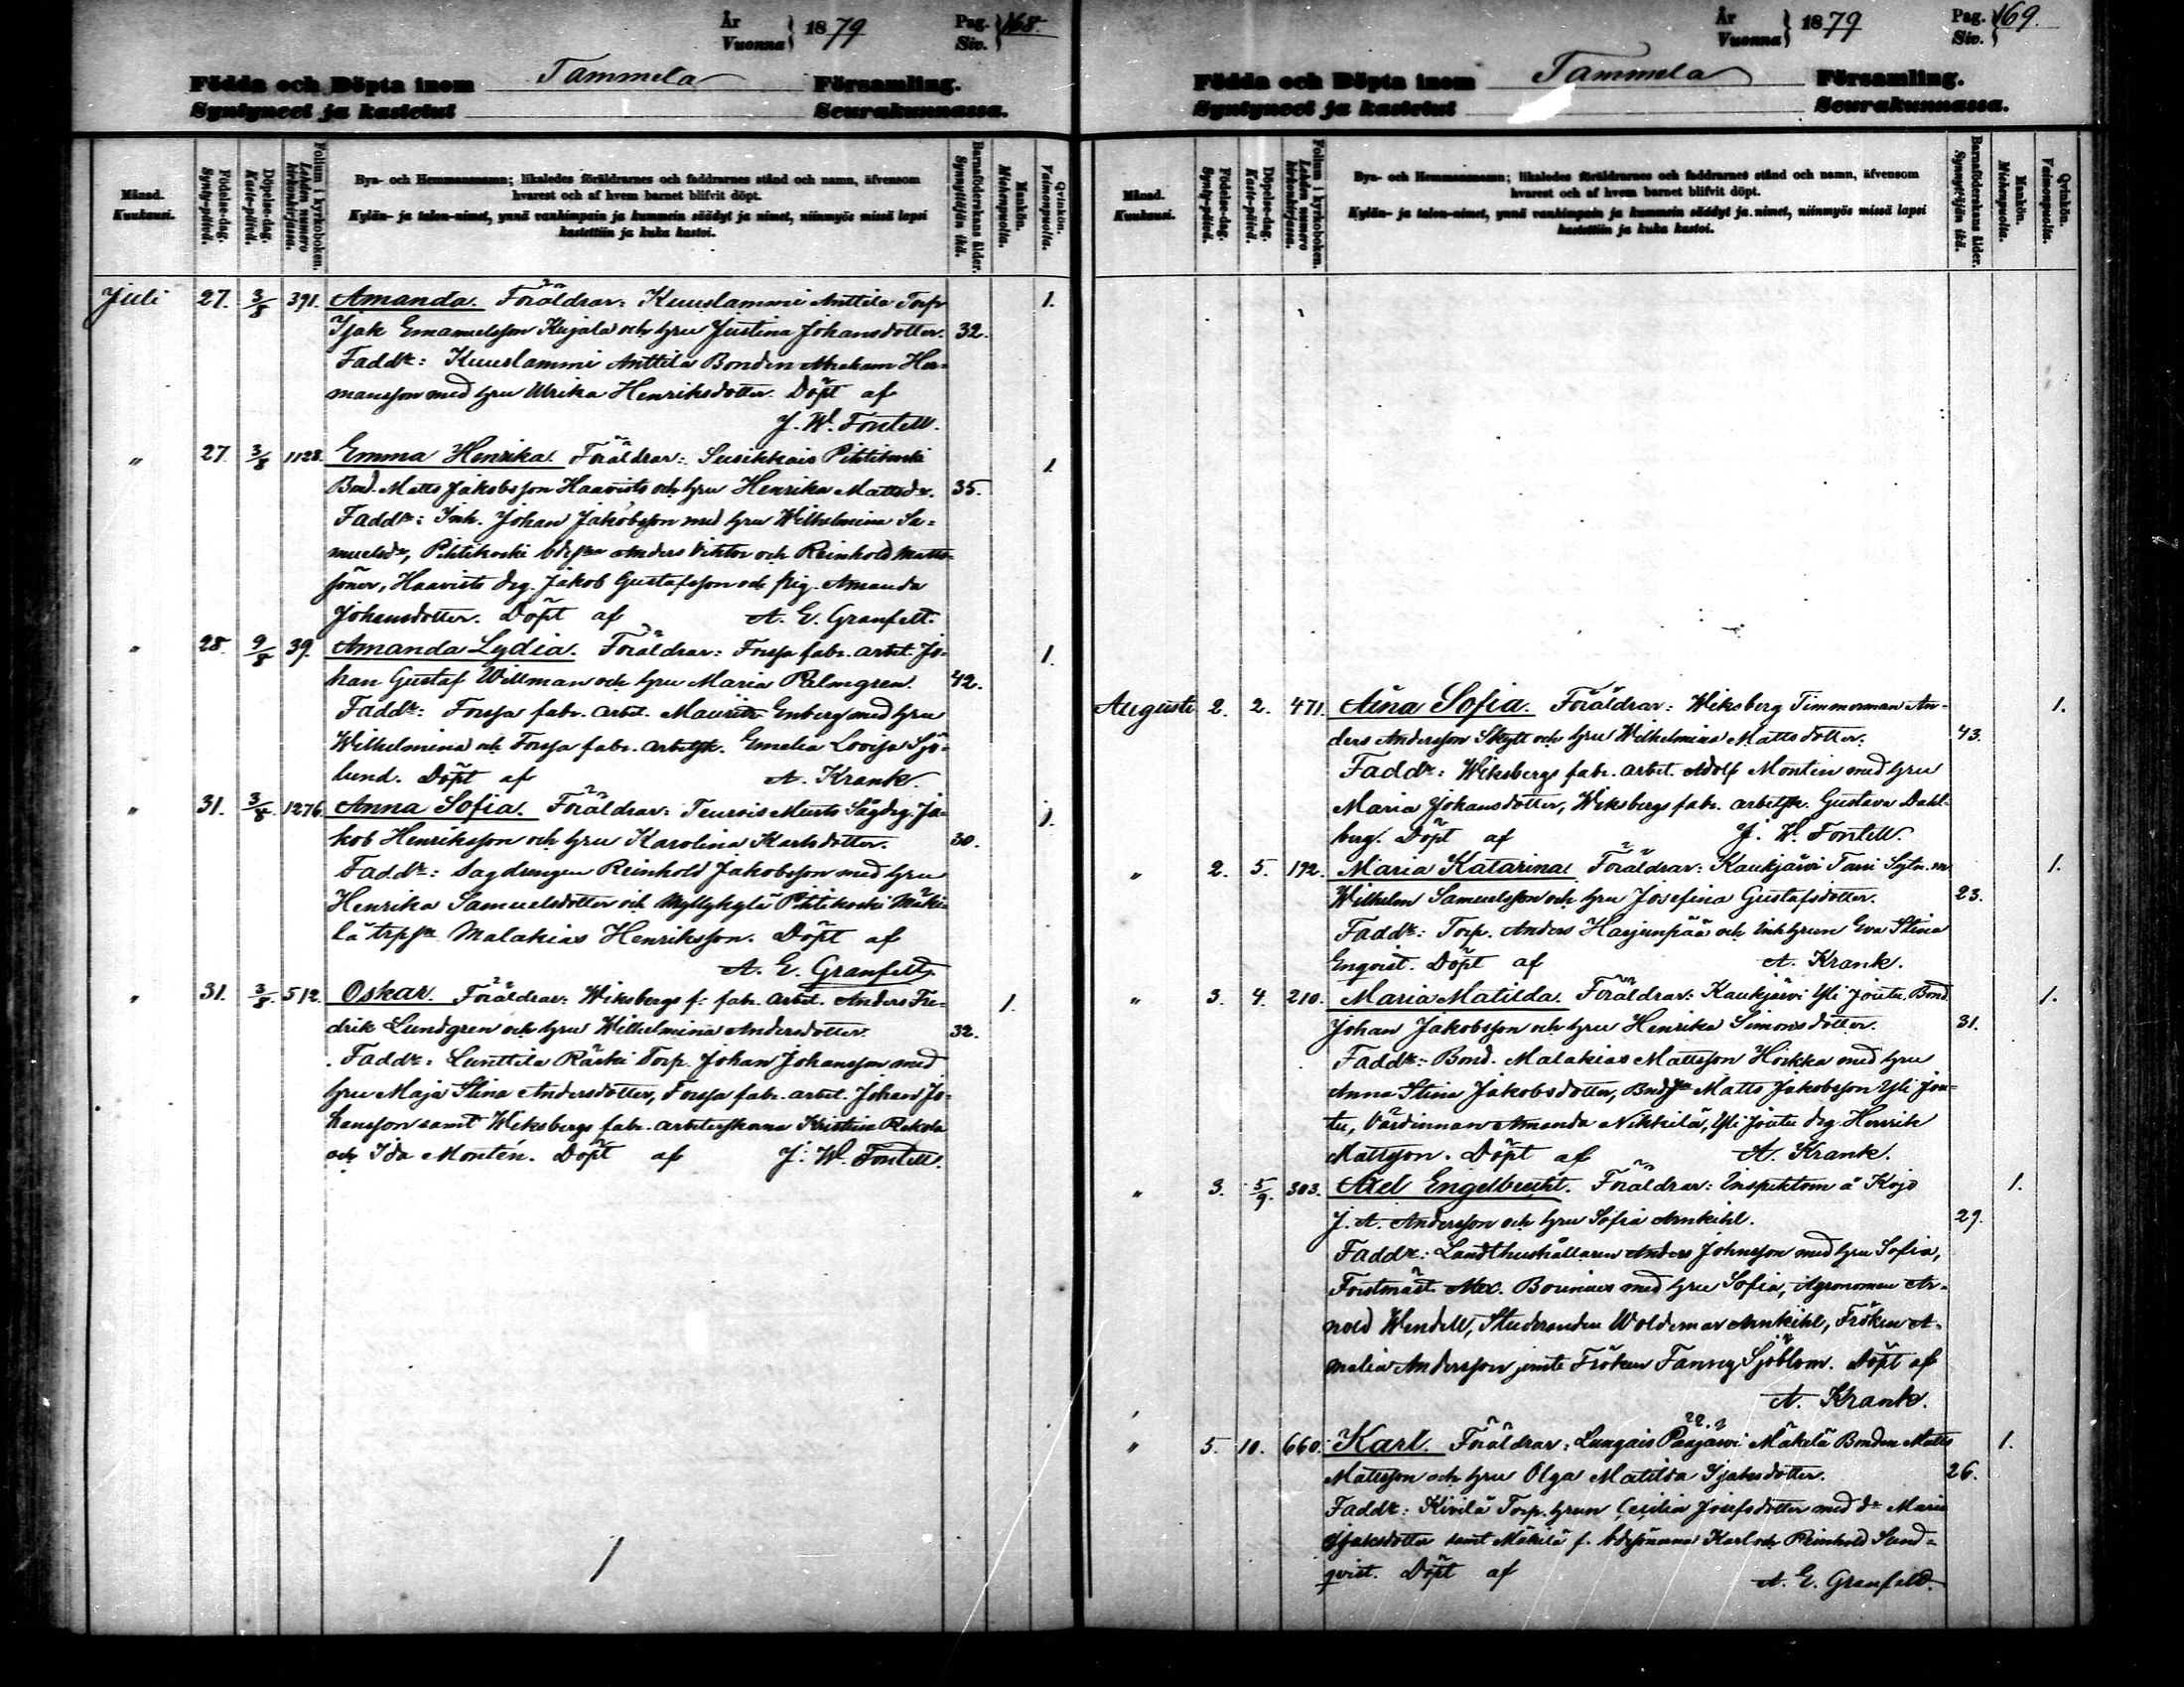 År
Vuonna } 1879 Pag.
Siv. } 168.
Födda och Döpta inom Tammela Församling.
Syntyneet ja kastetut Seurakunnassa.
Månad.
Kuukausi.
Födelse-dag.
Synty-päivä.
Döpelse-dag.
Kaste-päivä.
Folium i kyrkoboken.
Lehden numero
kirkonkirjassa.
Bya- och Hemmansnamn; likaledes föräldrarnes och faddrarnes stånd och namn, äfvensom
hvarest och af hvem barnet blifvit döpt.
Kylän- ja talon-nimet, ynnä vanhimpain ja kummein säädyt ja nimet, niinmyös missä lapsi
kastettiin ja kuka kastoi.
Barnaföderskans ålder.
Synnyttäjän ikä.
Mankön.
Miehenpuolta.
Qvinkön.
Vaimonpuolta.
Juli 27. 3/8 391. Amanda. Föräldrar: Kuuslammi Anttila Torp. 1.
Isak Emanuelsson Kujala och hru Justina Johansdotter. 32.
Faddr: Kuuslammi Anttila Bonden Abraham Her-
mansson med hru Ulrika Henriksdotter. Döpt af
J. W. Fontell.
" 27. 3/8 1128. Emma Henrika. Föräldrar: Susikkais Pihtikoski 1
Bond. Matts Jakobsson Haavisto och hru Henrika Mattsdr. 35.
Faddr: Inh. Johan Jakobsson med hru Wilhelmina Sa-
muelsdr, Pihtikoski bdesönr Anders Viktor och Reinhold Matts-
söner, Haavisto drg. Jakob Gustafsson och pig. Amanda
Johansdotter. Döpt af A. E. Granfelt.
" 28. 9/8 39. Amanda Lydia. Föräldrar: Forssa fabr. arbet. Jo- 1.
han Gustaf Willman och hru Maria Palmgren. 42.
Faddr: Forssa fabr. arbet. Mauritz Enberg med hru
Wilhelmina och Forssa fabr. arbetsk. Emelia Lovisa Sjö-
lund. Döpt af A. Krank.
" 31. 3/8. 1276 Anna Sofia. Föräldrar: Teuvois Musto Sågdrg. Ja- 1.
kob Henriksson och hru Karolina Karlsdotter. 30.
Faddr: Sagdrengen Reinhold Jakobsson med hru
Henrika Samuelsdotter och Myllykylä Pihtikoski Mäki-
lä trpsr Malakias Henriksson. Döpt af
A. E. Granfelt.
" 31. 3/8. 512. Oskar. Föräldrar: Wiksbergs f: fabr. arbet. Anders Fre- 1.
drik Lundgren och hru Wilhelmina Andersdotter. 32.
Faddr: Lunttila Räski Torp. Johan Johansson med
hru Maja Stina Andersdotter, Forssa fabr. arbet. Johan Jo-
hansson samt Wiksbergs fabr. arbeterskorna Kristina Rekola
och Ida Montén. Döpt af J. W. Fontell.
År
Vuonna } 1879 Pag.
Siv. } 169.
Födda och Döpta inom Tammela Församling.
Syntyneet ja kastetut Seurakunnassa.
Månad.
Kuukausi.
Födelse-dag.
Synty-päivä.
Döpelse-dag.
Kaste-päivä.
Folium i kyrkoboken.
Lehden numero
kirkonkirjassa.
Bya- och Hemmansnamn; likaledes föräldrarnes och faddrarnes stånd och namn, äfvensom
hvarest och af hvem barnet blifvit döpt.
Kylän- ja talon-nimet, ynnä vanhimpain ja kummein säädyt ja nimet, niinmyös missä lapsi
kastettiin ja kuka kastoi.
Barnaföderskans ålder.
Synnyttäjän ikä.
Mankön.
Miehenpuolta.
Qvinkön.
Vaimonpuolta.
Augusti 2. 2. 471. Aina Sofia. Föräldrar: Wiksberg Timmerman An- 1.
ders Andersson Skytt och hru Wilhelmina Mattsdotter. 43.
Faddr: Wiksbergs fabr. arbet. Adolf Montin med hru
Maria Johansdotter, Wiksbergs fabr. arbetsk. Gustava Dahl-
berg. Döpt af J. W. Fontell.
" 2. 5. 192. Maria Katarina. Föräldrar: Kaukjärvi Tani Sytn. m 1.
Wilhelm Samuelsson och hru Josefina Gustafsdotter. 23.
Faddr: Torp. Anders Harjunpää och Inh hrun Eva Stina
Enqvist. Döpt af A. Krank.
" 3. 4. 210. Maria Matilda. Föräldrar: Kaukjärvi Yli Joutu Bond. 1.
Johan Jakobsson och hru Henrika Simonsdotter. 31.
Faddr: Bond. Malakias Mattsson Hörkkä med hru
Anna Stina Jakobsdotter, Bndsr Matts Jakobsson Yli Jou-
tu, Värdinnan Amanda Nikkilä, Yli Joutu drg. Henrik
Mattsson. Döpt af A. Krank.
" 3. 5/9. 303. Axel Engelbrecht. Föräldrar: Inspektorn å Kojo 1.
J. A. Andersson och hru Sofia Arnkihl. 29.
Faddr: Landthushållaren Anders Johnsson med hru Sofia,
Forstmäst. Alex. Bounier med hru Sofia, Agronomen Ar-
nold Wendell, Studeranden Woldemar Arnkihl, Fröken A-
malia Andersson jemte Fröken Fanny Sjöblom. Döpt af
A. Krank.
" 5. 10. 660. Karl. Föräldrar: Lungais Pääjärvi Mäkelä Bonden Matts 1.
Mattsson och hru Olga Matilda Isaksdotter. 26.
Faddr: Kivilä Torp. hrun Cecilia Josefsdotter med dr Maria
Isaksdotter samt Mäkilä f. bdesönerna Karl och Reinhold Sund-
qvist. Döpt af A. E. Granfeld.